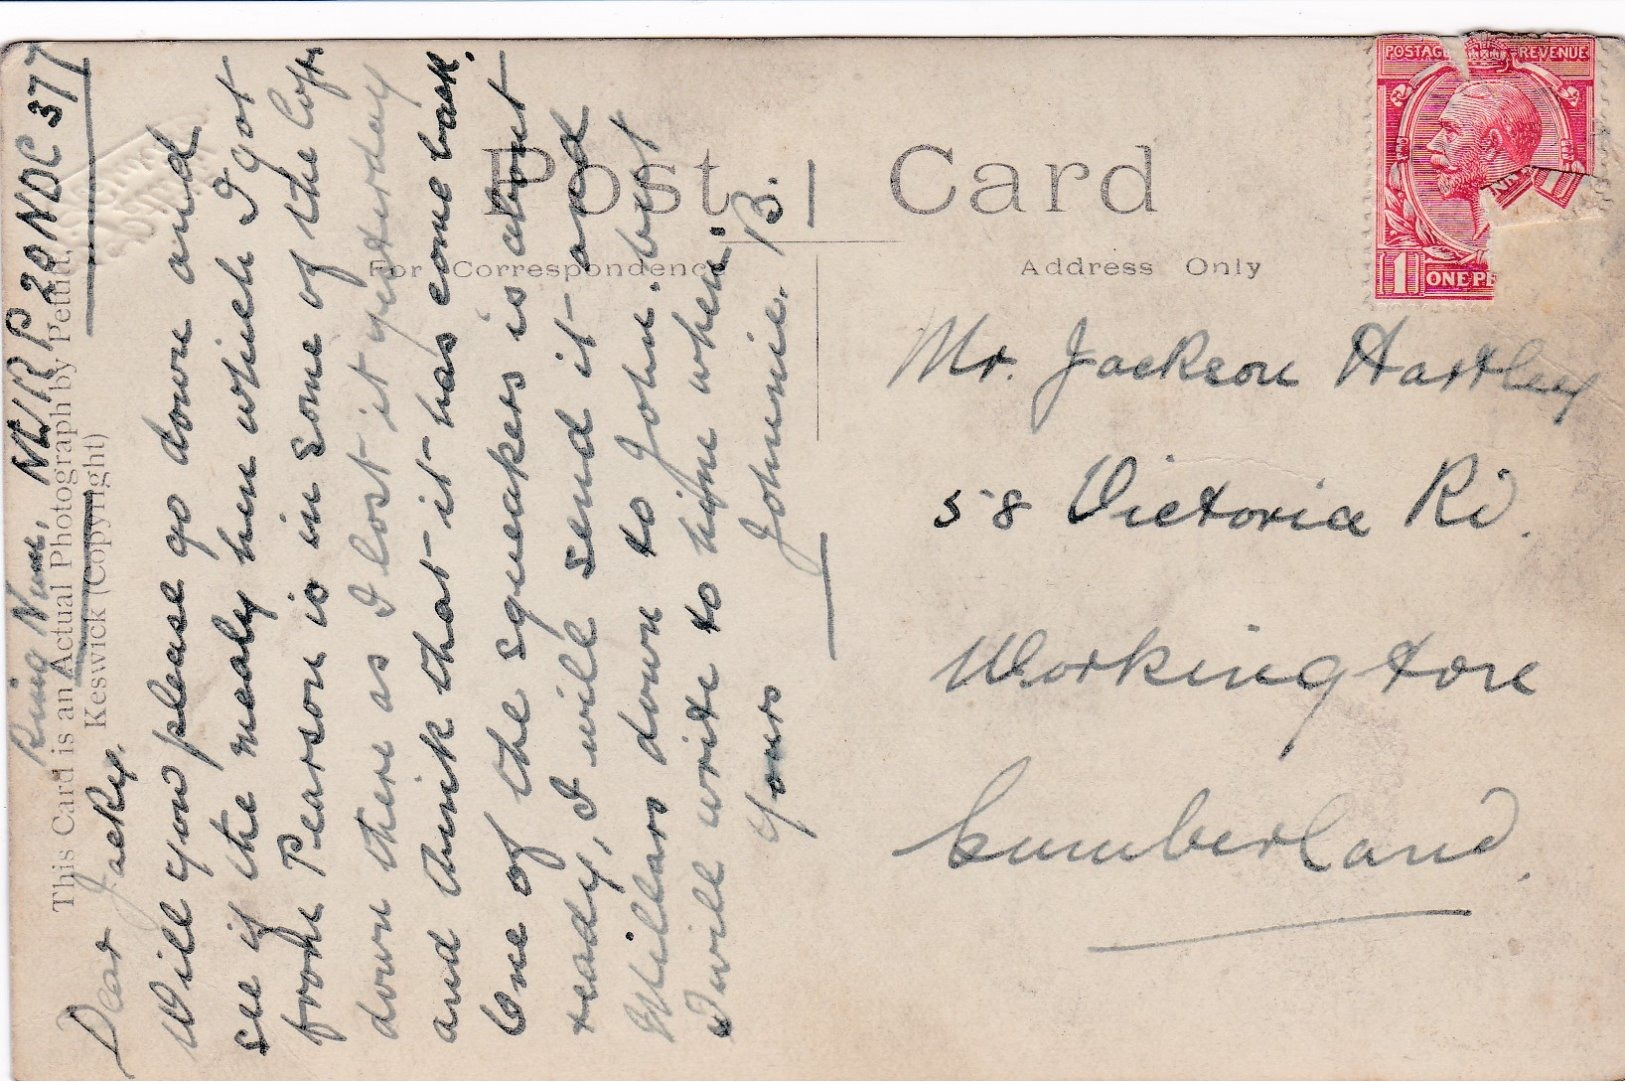 Post Card
For Correspondence
Address Only
POSTAGE REVENUE
1 ONE PE
This Card is an Actual Photograph by Pettitt,
Keswick (Copyright)
Ring Num, NURP 20NDC 377
Dear Jacky,
Will you please go down and
see if the mealy hen which I got
from Pearson is in some of the lofts
down there as I lost it yesterday
and think that it has come back.
One of the squeakers is about
ready, I will send it and
Millars down to John. but
I will write to him when.
Yours Johnnie. B.
Mr. Jackson Hartley
58 Victoria Rd.
Workington
Cumberland.